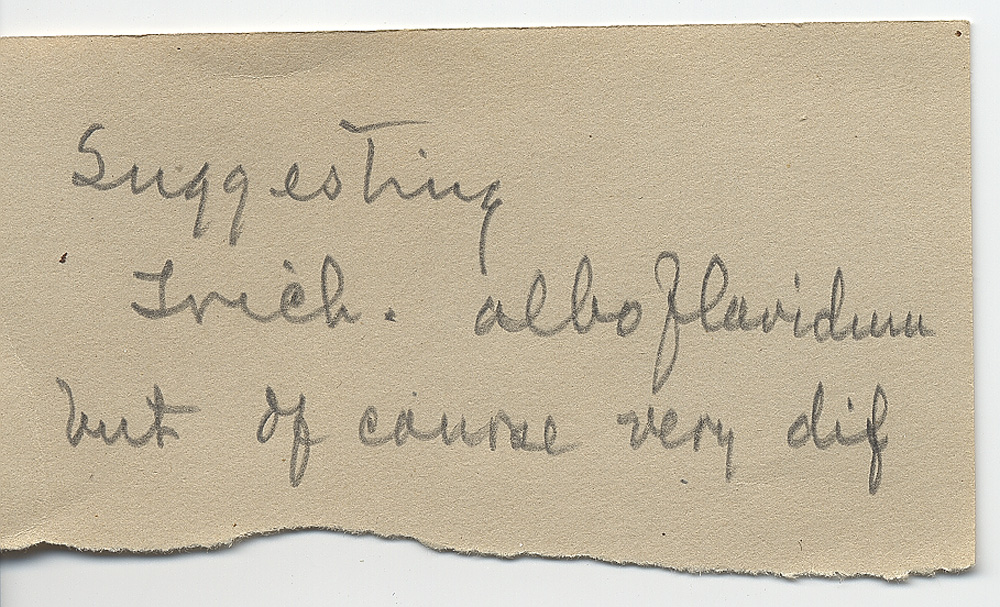 Suggesting
Trich. alboflavidum
but of course very dif